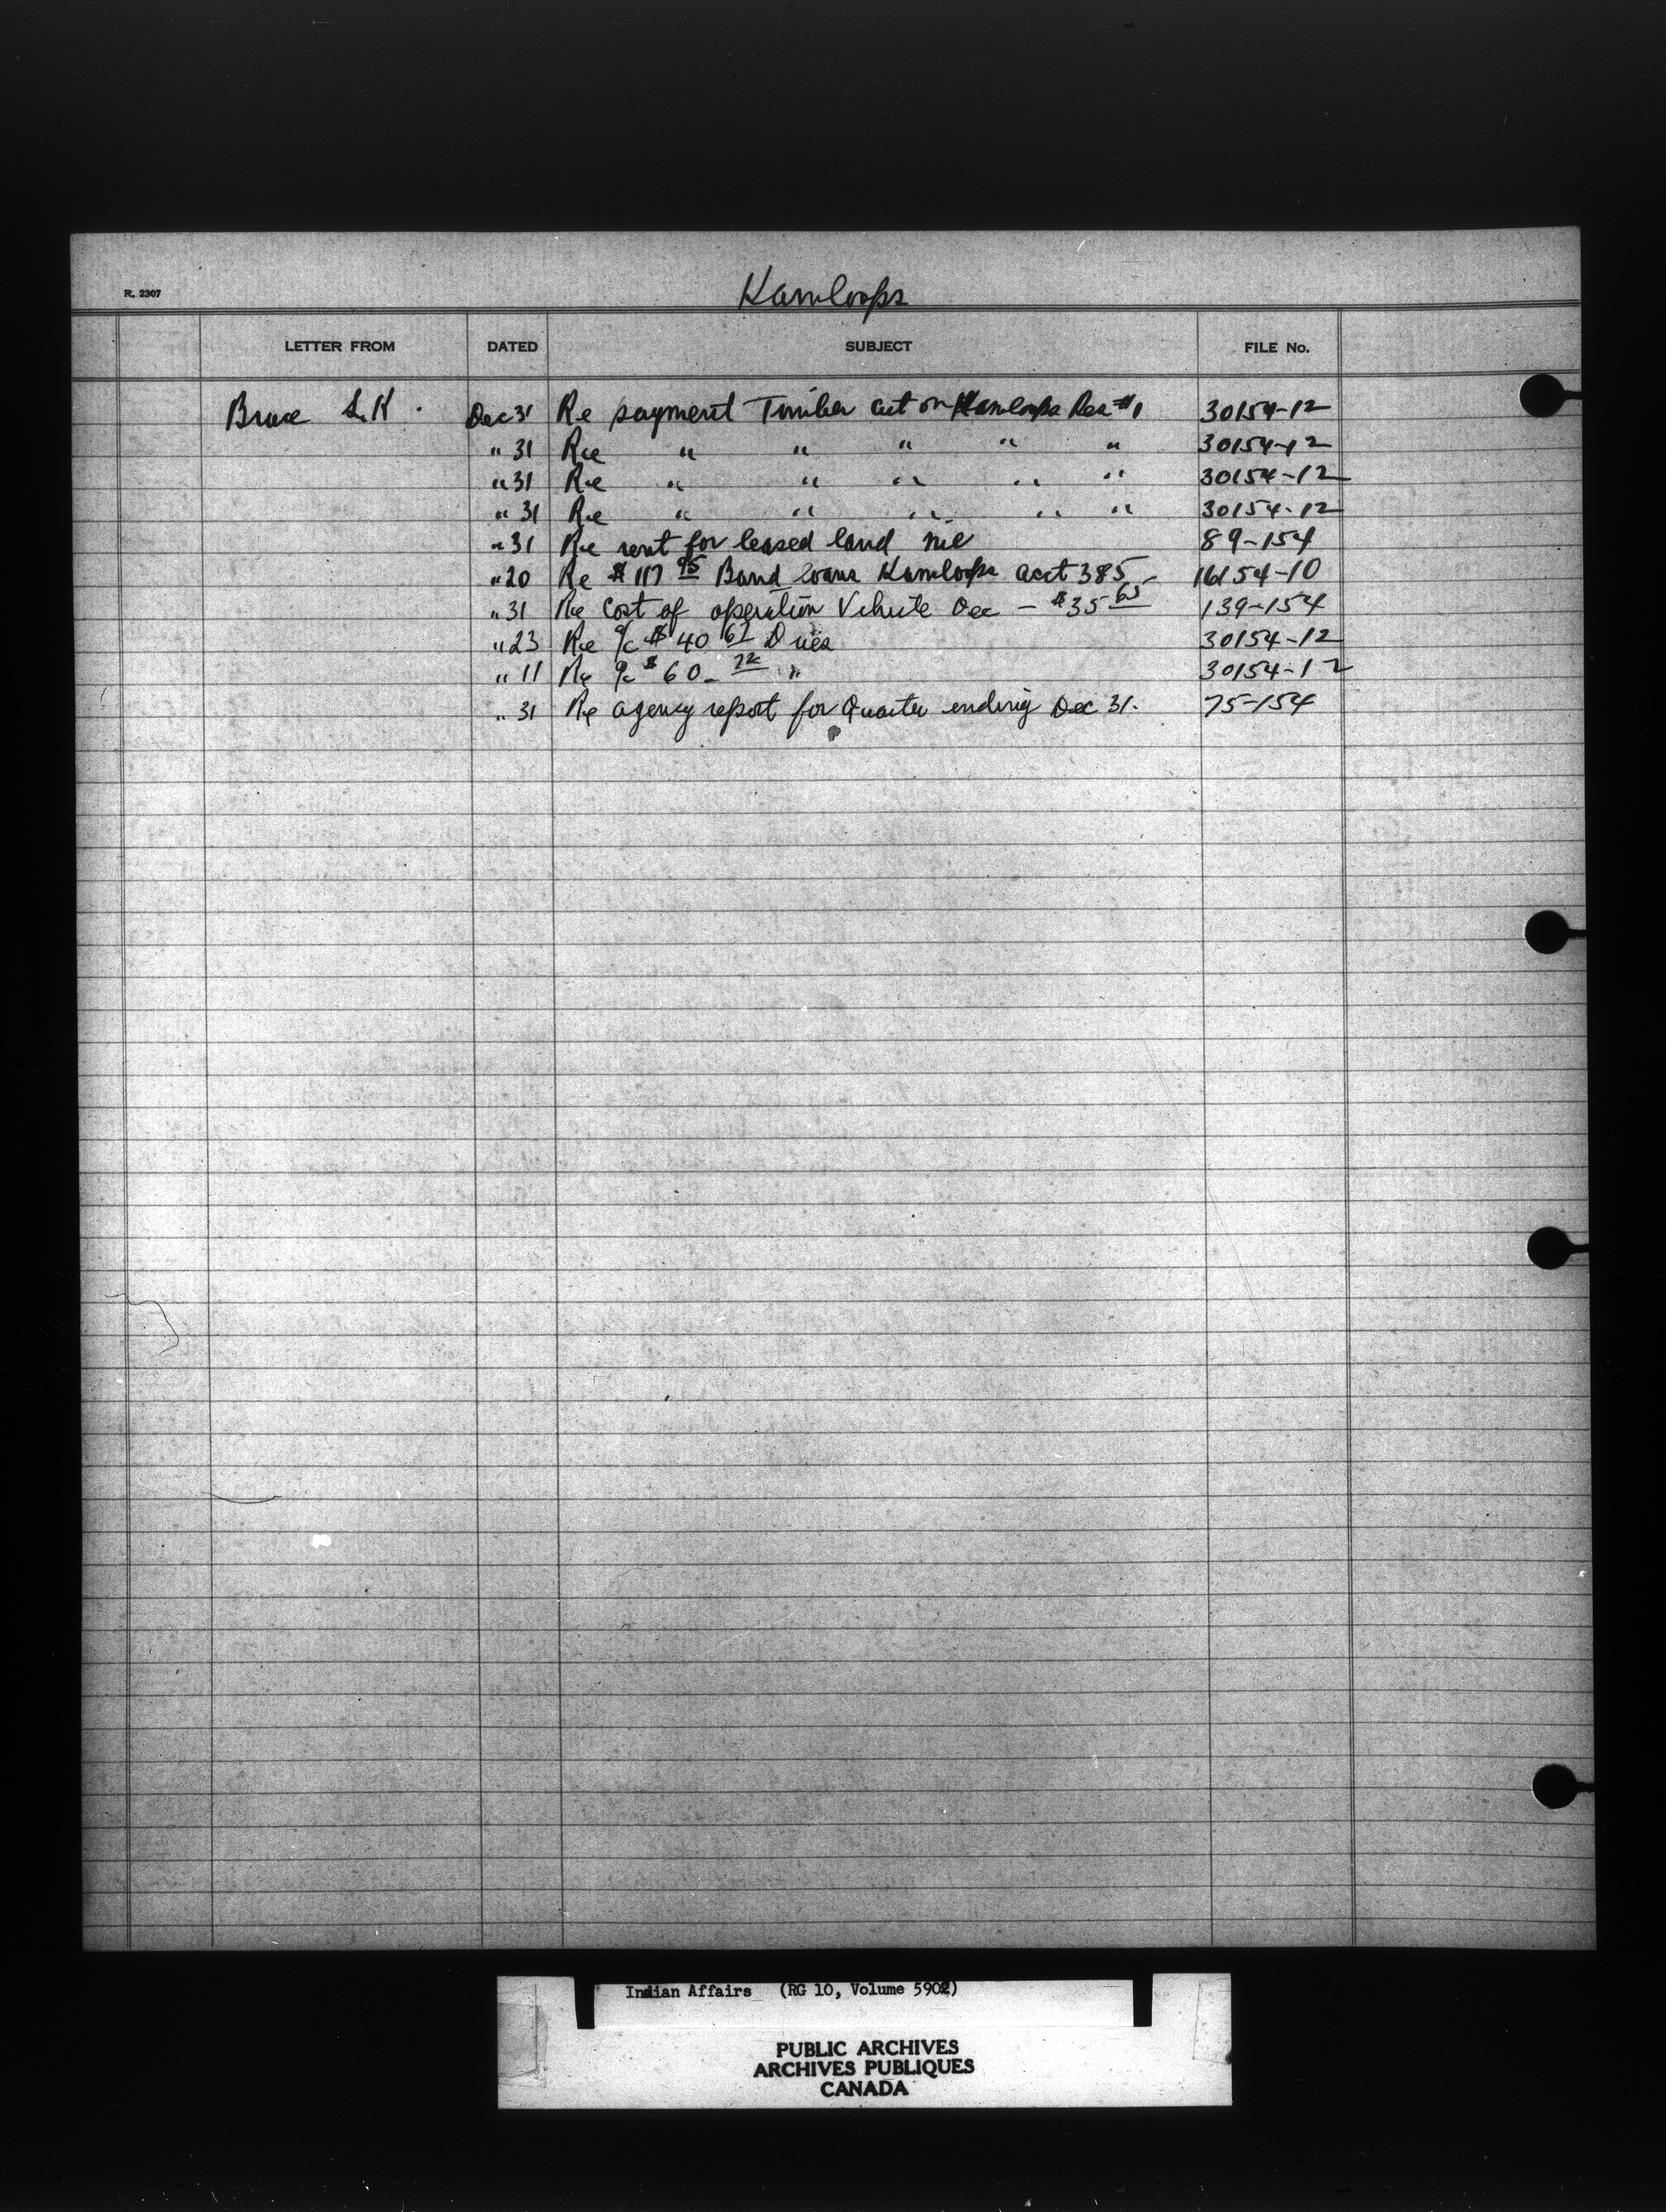 R. 2307
Kamloops
LETTER FROM DATED SUBJECT FILE No.
Bruce Dec 31 Re payment Timber cut on Kamloops Res #1 30154-12
" 31 Re " " " " " 30154-12
" 31 Re " " " " " 30154-12
" 31 Re " " " " " 30154-12
" 31 Re rent for leased land nil 89-154
" 20 Re $117 95 Band loans Kamloops acct 385 - 16154-10
" 31 Re Cost of operation Vehicle Dec - $35 65 139-154
" 23 Re $40 62 Dues 30154-12
" 11 Re $60 - 72 " 30154-12
" 31 Re agency report for Quarter ending Dec 31. 75-154
Indian Affairs (RG 10, Volume 5902)
PUBLIC ARCHIVES
ARCHIVES PUBLIQUES
CANADA